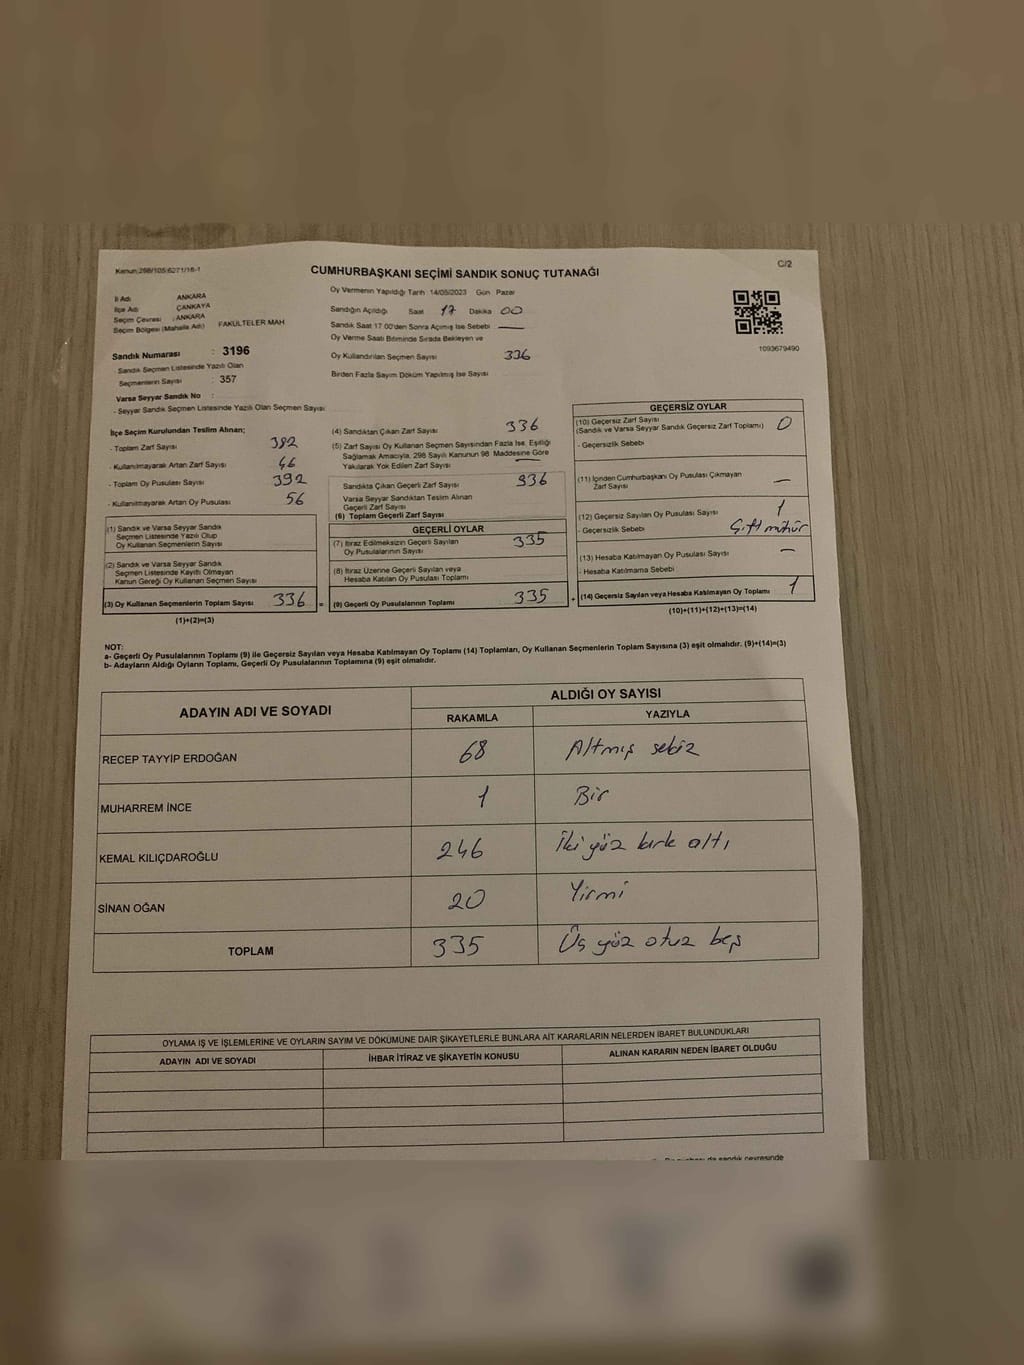 Kanun:298/105;6271/16-1
C/2
CUMHURBAŞKANI SEÇİMİ SANDIK SONUÇ TUTANAĞI
İl Adı : ANKARA
İlçe Adı : ÇANKAYA
Seçim Çevresi : ANKARA
Seçim Bölgesi (Mahalle Adı) : FAKÜLTELER MAH
Sandık Numarası : 3196
- Sandık Seçmen Listesinde Yazılı Olan
Seçmenlerin Sayısı : 357
Varsa Seyyar Sandık No :
- Seyyar Sandık Seçmen Listesinde Yazılı Olan Seçmen Sayısı
Oy Vermenin Yapıldığı Tarih 14/05/2023 Gün Pazar
Sandığın Açıldığı Saat 17 Dakika 00
Sandık Saat 17:00'den Sonra Açılmış İse Sebebi —
Oy Verme Saati Bitiminde Sırada Bekleyen ve
Oy Kullandırılan Seçmen Sayısı 336
Birden Fazla Sayım Döküm Yapılmış İse Sayısı
1093679490
İlçe Seçim Kurulundan Teslim Alınan;
- Toplam Zarf Sayısı 382
- Kullanılmayarak Artan Zarf Sayısı 46
- Toplam Oy Pusulası Sayısı 392
- Kullanılmayarak Artan Oy Pusulası 56
(1) Sandık ve Varsa Seyyar Sandık
Seçmen Listesinde Yazılı Olup
Oy Kullanan Seçmenlerin Sayısı
(2) Sandık ve Varsa Seyyar Sandık
Seçmen Listesinde Kayıtlı Olmayan
Kanun Gereği Oy Kullanan Seçmen Sayısı
(3) Oy Kullanan Seçmenlerin Toplam Sayısı 336 =
(1)+(2)=(3)
(4) Sandıktan Çıkan Zarf Sayısı 336
(5) Zarf Sayısı Oy Kullanan Seçmen Sayısından Fazla İse, Eşitliği
Sağlamak Amacıyla, 298 Sayılı Kanunun 98. Maddesine Göre
Yakılarak Yok Edilen Zarf Sayısı —
Sandıkta Çıkan Geçerli Zarf Sayısı 336
Varsa Seyyar Sandıktan Teslim Alınan
Geçerli Zarf Sayısı
(6) Toplam Geçerli Zarf Sayısı
GEÇERLİ OYLAR
(7) İtiraz Edilmeksizin Geçerli Sayılan
Oy Pusulalarının Sayısı 335
(8) İtiraz Üzerine Geçerli Sayılan veya
Hesaba Katılan Oy Pusulası Toplamı
(9) Geçerli Oy Pusulalarının Toplamı 335 +
GEÇERSİZ OYLAR
(10) Geçersiz Zarf Sayısı
(Sandık ve Varsa Seyyar Sandık Geçersiz Zarf Toplamı) 0
- Geçersizlik Sebebi
(11) İçinden Cumhurbaşkanı Oy Pusulası Çıkmayan
Zarf Sayısı —
(12) Geçersiz Sayılan Oy Pusulası Sayısı 1
- Geçersizlik Sebebi Çift mühür
(13) Hesaba Katılmayan Oy Pusulası Sayısı —
- Hesaba Katılmama Sebebi
(14) Geçersiz Sayılan veya Hesaba Katılmayan Oy Toplamı 1
(10)+(11)+(12)+(13)=(14)
NOT:
a- Geçerli Oy Pusulalarının Toplamı (9) ile Geçersiz Sayılan veya Hesaba Katılmayan Oy Toplamı (14) Toplamları, Oy Kullanan Seçmenlerin Toplam Sayısına (3) eşit olmalıdır. (9)+(14)=(3)
b- Adayların Aldığı Oyların Toplamı, Geçerli Oy Pusulalarının Toplamına (9) eşit olmalıdır.
ADAYIN ADI VE SOYADI
ALDIĞI OY SAYISI
RAKAMLA YAZIYLA
RECEP TAYYİP ERDOĞAN 68 Altmış sekiz
MUHARREM İNCE 1 Bir
KEMAL KILIÇDAROĞLU 246 İki yüz kırk altı
SİNAN OĞAN 20 Yirmi
TOPLAM 335 Üç yüz otuz beş
OYLAMA İŞ VE İŞLEMLERİNE VE OYLARIN SAYIM VE DÖKÜMÜNE DAİR ŞİKAYETLERLE BUNLARA AİT KARARLARIN NELERDEN İBARET BULUNDUKLARI
ADAYIN ADI VE SOYADI İHBAR İTİRAZ VE ŞİKAYETİN KONUSU ALINAN KARARIN NEDEN İBARET OLDUĞU
da sandık çevresinde